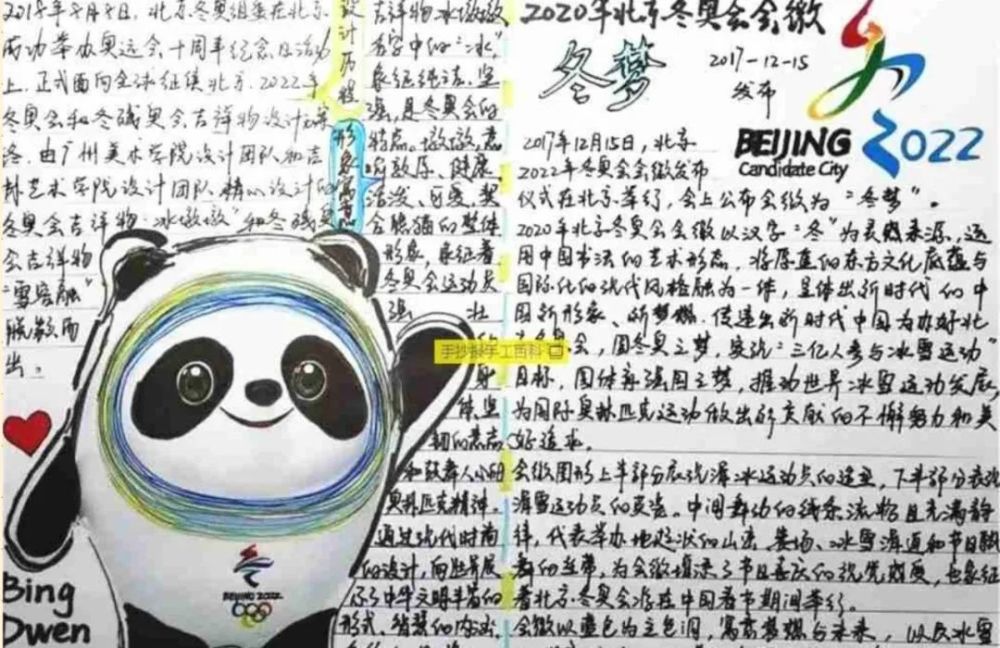 2018年8月8日,北京冬奥组委在北京
两动举办奥运会十周年纪念日活动
上,正式面向全球征集北京2022年
冬奥会和冬残奥会吉祥物设计方案
由广州美术学院设计团队和吉
林艺术学院设计团队精心设计的
冬奥会吉祥物"冰墩墩"和冬残奥
会吉祥物
"雪容融"
脱颖而
出。
设计历程
吉祥物冰墩墩
名字中的"冰"
象征纯洁、坚
强,是冬奥会的
特点。墩墩,意
敦厚、健康、
活泼、可爱,契
合熊猫的整体
形象,象征着
冬奥会运动员
强壮
的
身
体、坚
韧的意志
和鼓舞人心的
奥林匹克精神。
通过现代时尚
的设计,向世界展
示了中华文明丰富的
形式
Bing
Dwen
BEIJING 2022
手抄报手工百科
2020年北京冬奥会会徽
冬梦
2017-12-15
发布
BEIJING
Candidate City
2022
2017年12月15日,北京
2022年冬奥会会徽发布
仪式在北京举行,会上公布会徽为"冬梦"。
2020年北京冬奥会会徽以汉字"冬"为灵感来源,运
用中国书法的艺术形态,将厚重的东方文化底蕴与
国际化的现代风格融为一体,呈体出新时代的中
国新形象、新梦想,传递出新时代中国为办好北
会,圆冬奥之梦,实现"三亿人参与冰雪运动"
目标,圆体育强国之梦,推动世界冰雪运动发展,
为国际奥林匹克运动做出新贡献的不懈努力和美
好追求。
会徽图形上半部分展现滑冰运动员的造型,下半部分表现
滑雪运动员的英姿。中间舞动的线条流畅且充满韵
律,代表举办地起伏的山峦、赛场、冰雪滑道和节日飘
舞的丝带,为会徽增添了节日喜庆的视觉感受,也象征
着北京冬奥会将在中国春节期间举行。
会徽以蓝色为主色调,寓意梦想与未来,以及冰雪